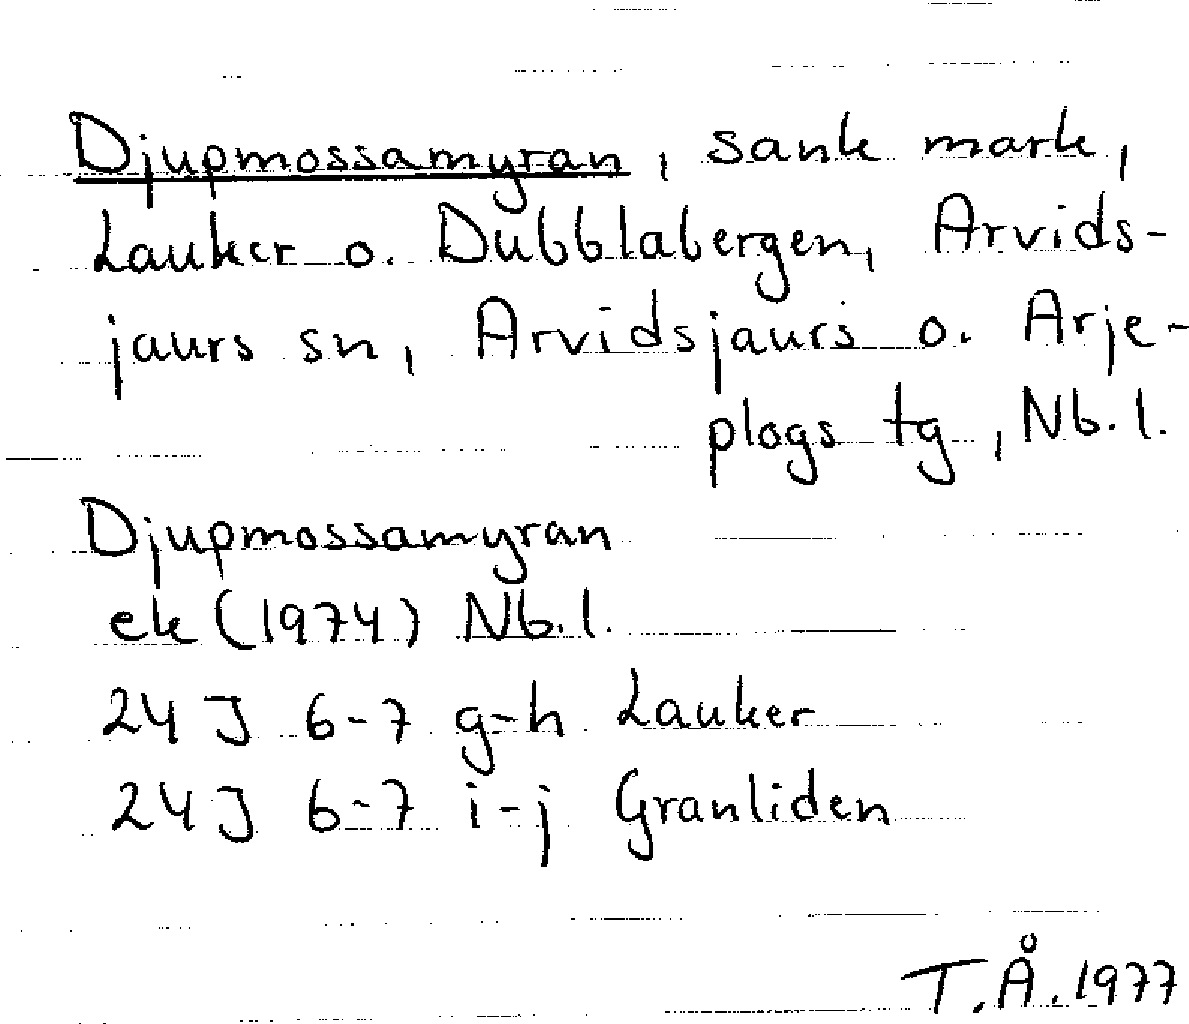 Djupmossamyran, sank mark,
Lauker o. Dubblabergen, Arvids-
jaurs sn, Arvidsjaurs o. Arje-
plogs tg, Nb.l.
Djupmossamyran
ek (1974) Nb.l.
24 J 6-7 g-h Lauker
24 J 6-7 i-j Granliden
T.Å. 1977